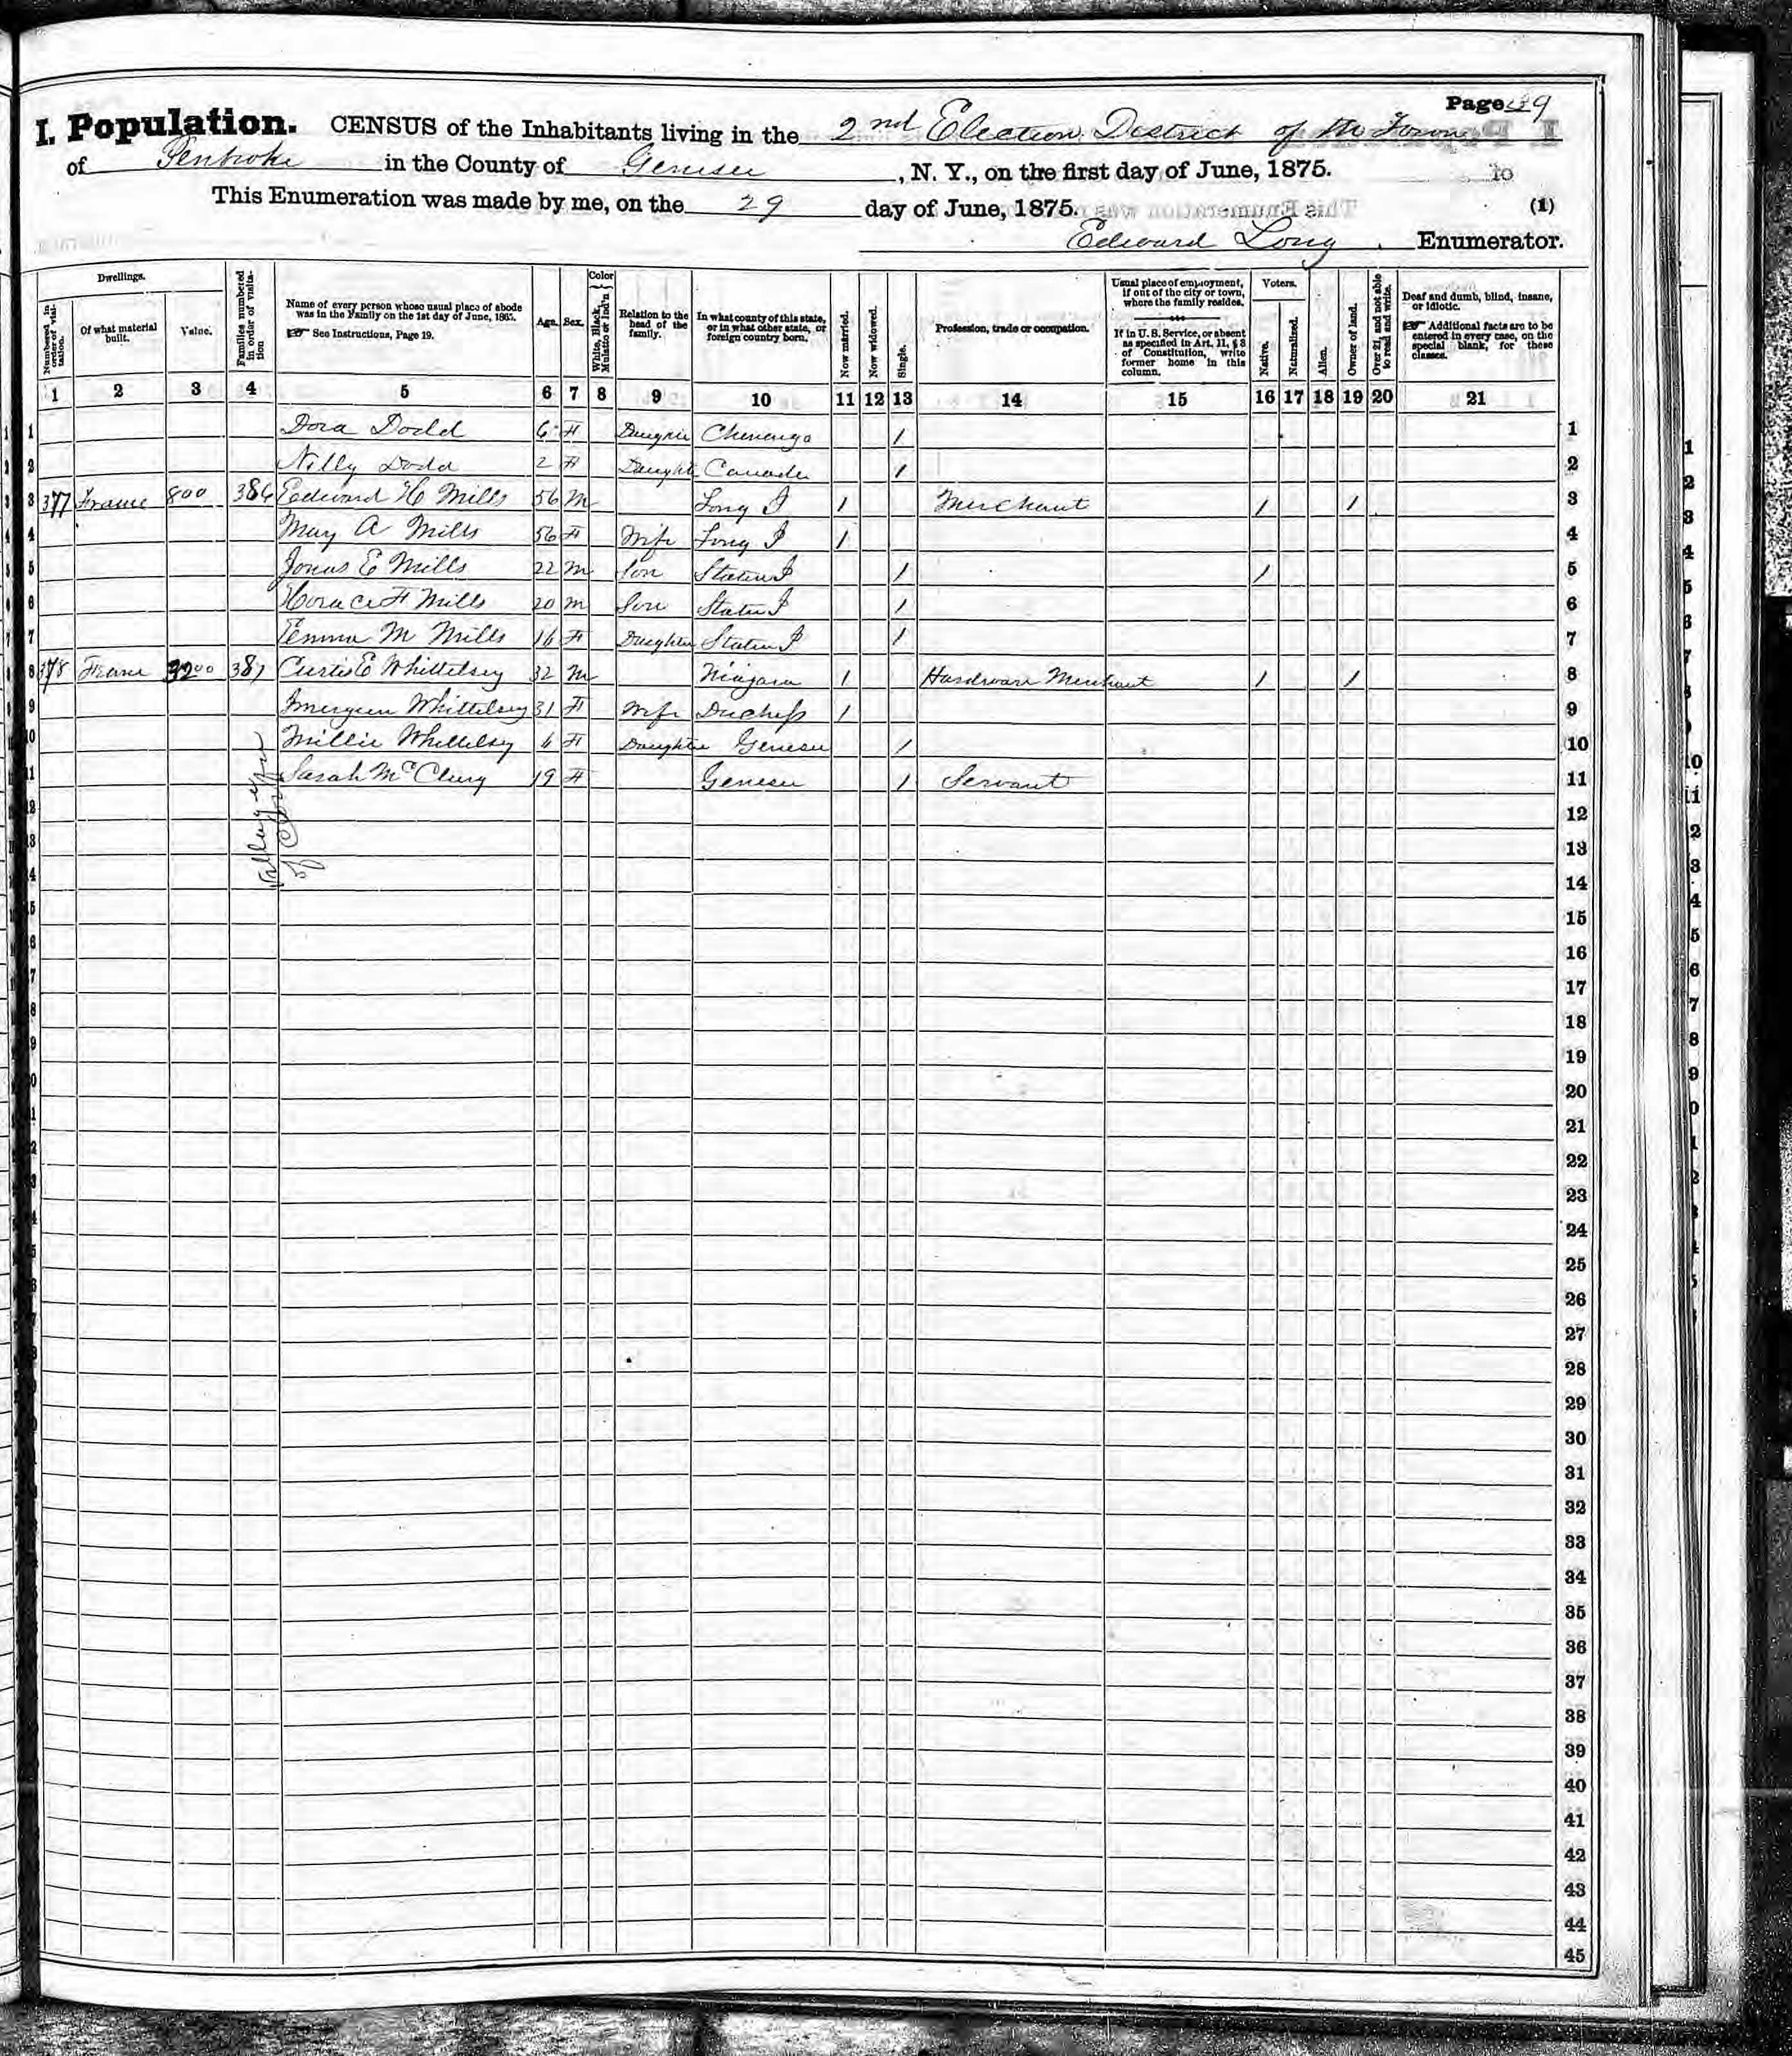 Page 39
I. Population. CENSUS of the Inhabitants living in the 2nd Election District of the Town
of Pembroke in the County of Genesee, N. Y., on the first day of June, 1875.
This Enumeration was made by me, on the 29 day of June, 1875. (1)
Edward Long Enumerator.
Dwellings.
Numbered in order of visitation.
Of what material built.
Value.
Families numbered in order of visitation
Name of every person whose usual place of abode was in the Family on the 1st day of June, 1865.
☞ See Instructions, Page 19.
Age.
Sex.
Color
White, Black, Mulatto or Ind'n
Relation to the head of the family.
In what county of this state, or in what other state, or foreign country born.
Now married.
Now widowed.
Single.
Profession, trade or occupation.
Usual place of employment, if out of the city or town, where the family resides.
If in U. S. Service, or absent as specified in Art. 11, § 3 of Constitution, write former home in this column.
Voters.
Native.
Naturalized.
Alien.
Owner of land.
Over 21, and not able to read and write.
Deaf and dumb, blind, insane, or idiotic.
☞ Additional facts are to be entered in every case, on the special blank, for these classes.
1 2 3 4 5 6 7 8 9 10 11 12 13 14 15 16 17 18 19 20 21
1 Dora Dodd 6 F Chenengo 1 1
2 Nelly Dodd 2 F Daughte Canada 1 2
3 377 Frame 800 386 Edward H Mills 56 M Long I 1 Merchant 1 1 3
4 Mary A Mills 56 F Wife Long I 1 4
5 Jonas E Mills 22 M Son Staten I 1 1 5
6 Horace F Mills 20 M Son Staten I 1 6
7 Emma M Mills 16 F Daughter Staten I 1 7
8 378 Frame 387 Curtis E Whittelsey 32 M Niagara 1 Hardware Merchant 1 1 8
9 Whittelsey 31 F Wife Duchess 1 9
10 Millie Whittelsey 6 F Daughter Genesee 1 10
11 Sarah McClury 19 F Genesee 1 Servant 11
12
13
14
15
16
17
18
19
20
21
22
23
24
25
26
27
28
29
30
31
32
33
34
35
36
37
38
39
40
41
42
43
44
45